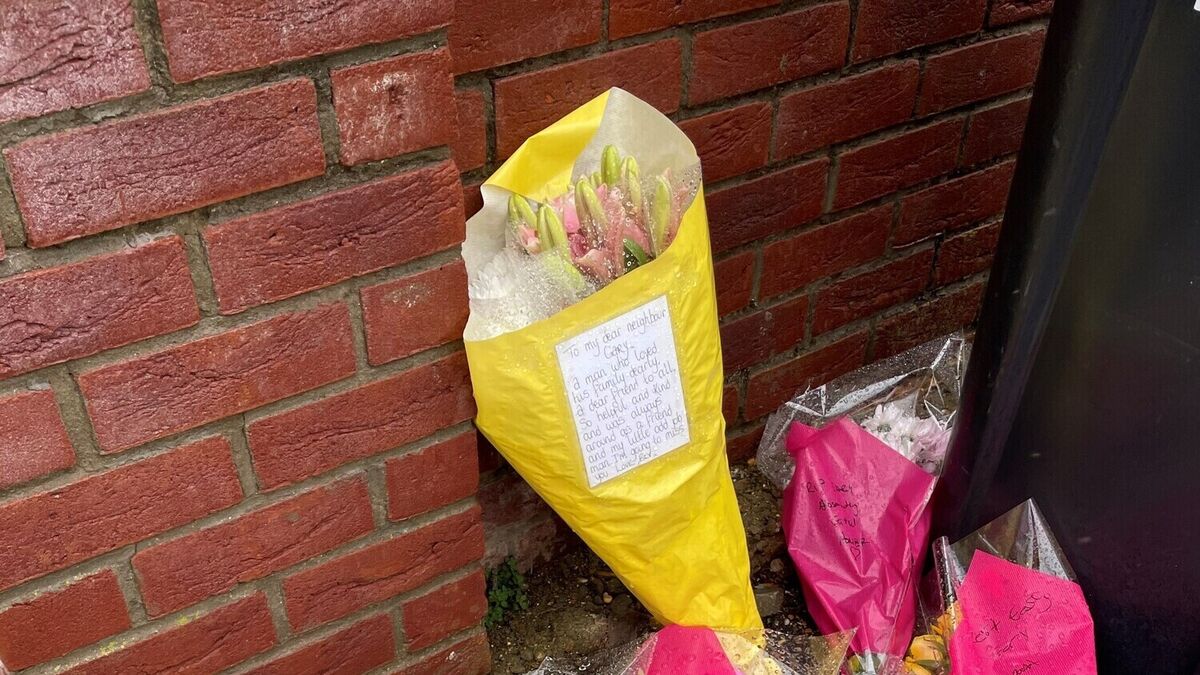 To my dear neighbour
Gary -
A man who loved
his family dearly.
A dear friend to all,
So helpful and kind
and was always
around as a friend
and my little odd job
man. I'm going to miss
you Love Bev.
RIP Gary
Absolutely
Easy